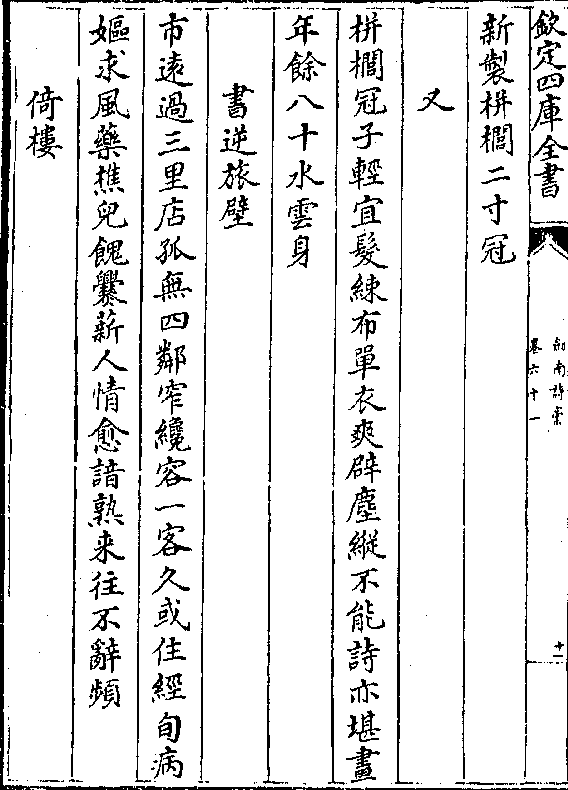 欽定四庫全書
劍南詩稾
卷六十一
十一
新製栟櫚二寸冠
又
栟櫚冠子輕宜髮練布單衣爽辟塵縱不能詩亦堪畫
年餘八十水雲身
書逆旅壁
市遠過三里店孤無四鄰窄纔容一客久或住經旬病
嫗求風藥樵兒餽爨薪人情愈諳熟来往不辭頻
倚樓